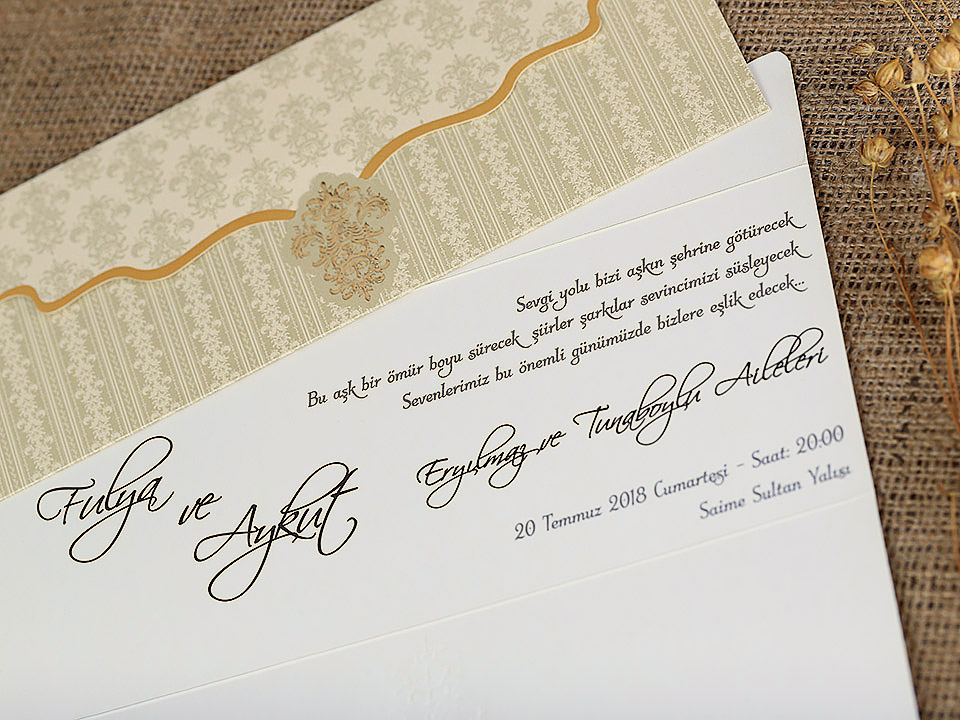 Sevgi yolu bizi aşkın şehrine götürecek
Bu aşk bir ömür boyu sürecek şiirler şarkılar sevincimizi süsleyecek
Sevenlerimiz bu önemli günümüzde bizlere eşlik edecek...
Fulya ve Aykut
Eryılmaz ve Tunaboylu Aileleri
20 Temmuz 2018 Cumartesi - Saat: 20:00
Saime Sultan Yalısı